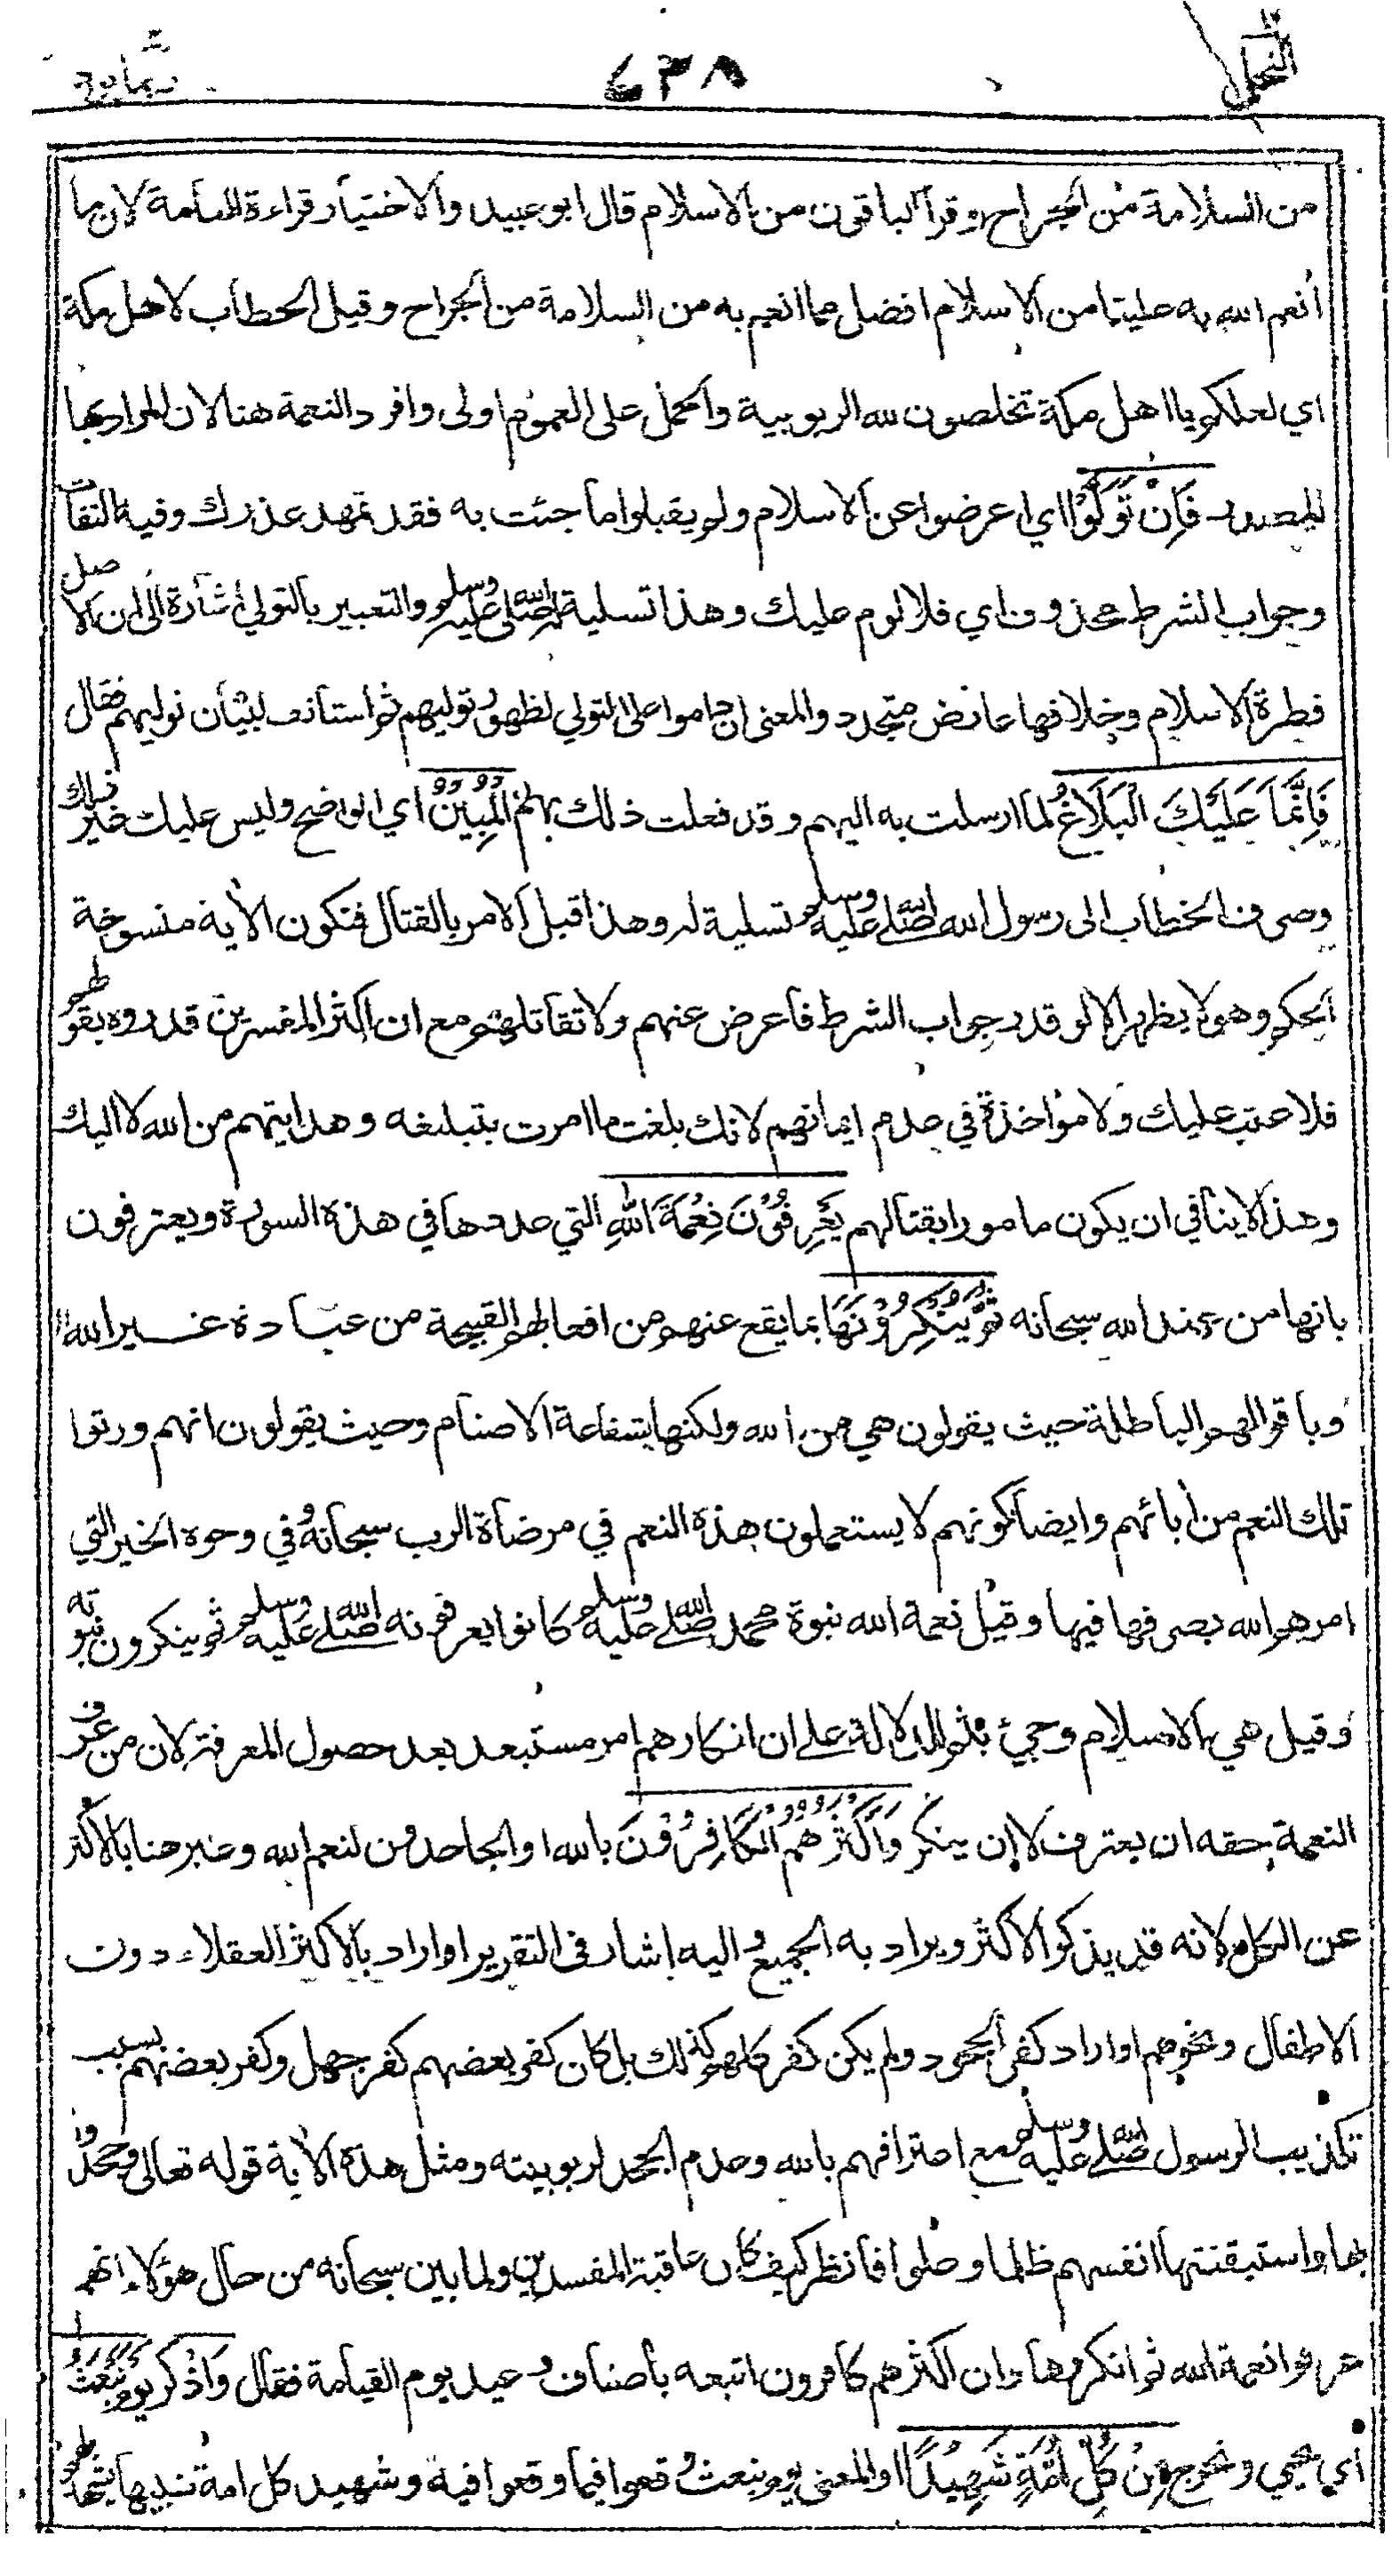 النحل
٦٣٨
من السلامة من الجراح وقرأ الباقون من الاسلام قال ابو عبيد والاختيار قراءة العامة لان ما
أنعم الله به علينا من الاسلام افضل مما انعم به من السلامة من الجراح وقيل الخطاب لاهل مكة
اي لعلكم يا اهل مكة تخلصون لله الربوبية والحمل على العموم اولى وافرد النعمة هنا لان المراد بها
المصدر فَإِنْ تَوَلَّوْا اي اعرضوا عن الاسلام ولم يقبلوا ما جئت به فقد تمهد عذرك وفيه التفات
وجواب الشرط محذوف اي فلا لوم عليك وهذا تسلية له صلى الله عليه وسلم والتعبير بالتولي اشارة الى ان الاصل
فطرة الاسلام وخلافها عارض متجدد والمعنى ان داموا على التولي لظهور توليهم ثم استأنف لبيان توليهم فقال
فَإِنَّمَا عَلَيْكَ الْبَلَاغُ لما ارسلت به اليهم وقد فعلت ذلك بهم الْمُبِينُ اي الواضح وليس عليك غير ذلك
وصرف الخطاب الى رسول الله صلى الله عليه وسلم تسلية له وهذا قبل الامر بالقتال فتكون الأية منسوخة
الحكم وهو لا يظهر الا لو قدر جواب الشرط فأعرض عنهم ولا تقاتلهم مع ان اكثر المفسرين قدروه بقولهم
فلا عتب عليك ولا مؤاخذة في عدم ايمانهم لانك بلغت ما امرت بتبليغه وهدايتهم من الله لا اليك
وهذا لا ينافي ان يكون مامورا بقتالهم يَعْرِفُوْنَ نِعْمَةَ اللهِ التي عددها في هذه السورة ويعترفون
بانها من عند الله سبحانه ثُمَّ يُنْكِرُوْنَهَا بما يقع عنهم من افعالهم القبيحة من عبادة غير الله
وباقوالهم الباطلة حيث يقولون هي من الله ولكنها بشفاعة الاصنام وحيث يقولون انهم ورثوا
تلك النعم من أبائهم وايضا كونهم لا يستعملون هذه النعم في مرضاة الرب سبحانه وفي وجوه الخير التي
امرهم الله بصرفها فيها وقيل نعمة الله نبوة محمد صلى الله عليه وسلم كانوا يعرفونه صلى الله عليه وسلم ثم ينكرون نبوته
وقيل هي الاسلام وجيء بثم للدلالة على ان انكارهم امر مستبعد بعد حصول المعرفة لان من عرف
النعمة حقه ان يعترف لا ان ينكر وَأَكْثَرُهُمُ الْكَافِرُوْنَ بالله او الجاحدون لنعم الله وعبر هنا بالاكثر
عن الكل لانه قد يذكر الاكثر ويراد به الجميع واليه اشار في التقرير او اراد بالاكثر العقلاء دون
الاطفال ونحوهم او اراد كفر الجحود ولم يكن كفر كلهم كذلك بل كان كفر بعضهم كفر جهل وكفر بعضهم بسبب
تكذيب الرسول صلى الله عليه وسلم مع اعترافهم بالله وعدم الجحد لربوبيته ومثل هذه الأية قوله تعالى وجحدوا
بها واستيقنتها انفسهم ظلما وعلوا فانظر كيف كان عاقبة المفسدين ولما بين سبحانه من حال هؤلاء انهم
عرفوا نعمة الله ثم انكروها وان اكثرهم كافرون اتبعه بأصناف وعيد يوم القيامة فقال وَاذْكُرْ يَوْمَ نَبْعَثُ
أي نحيي ونخرج مِنْ كُلِّ أُمَّةٍ شَهِيْدًا او المعنى يوم نبعث وقعوا فيما وقعوا فيه وشهيد كل امة نبيها يشهد